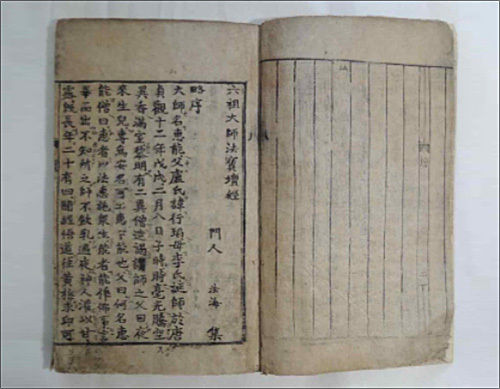 六祖大師法寶壇經
門人 法海 集
略序
大師名惠能父盧氏諱行瑫母李氏誕師於唐
貞觀十二年戊戌二月八日子時時毫光騰空
異香滿室黎明有二異僧造謁謂師之父曰夜
來生兒專爲安名可上惠下能也父曰何名惠
能僧曰惠者以法惠施衆生能者能作佛事言
畢而出不知所之師不飮乳過夜神人灌以甘
露旣長年二十有四聞經悟道往黃梅求印可